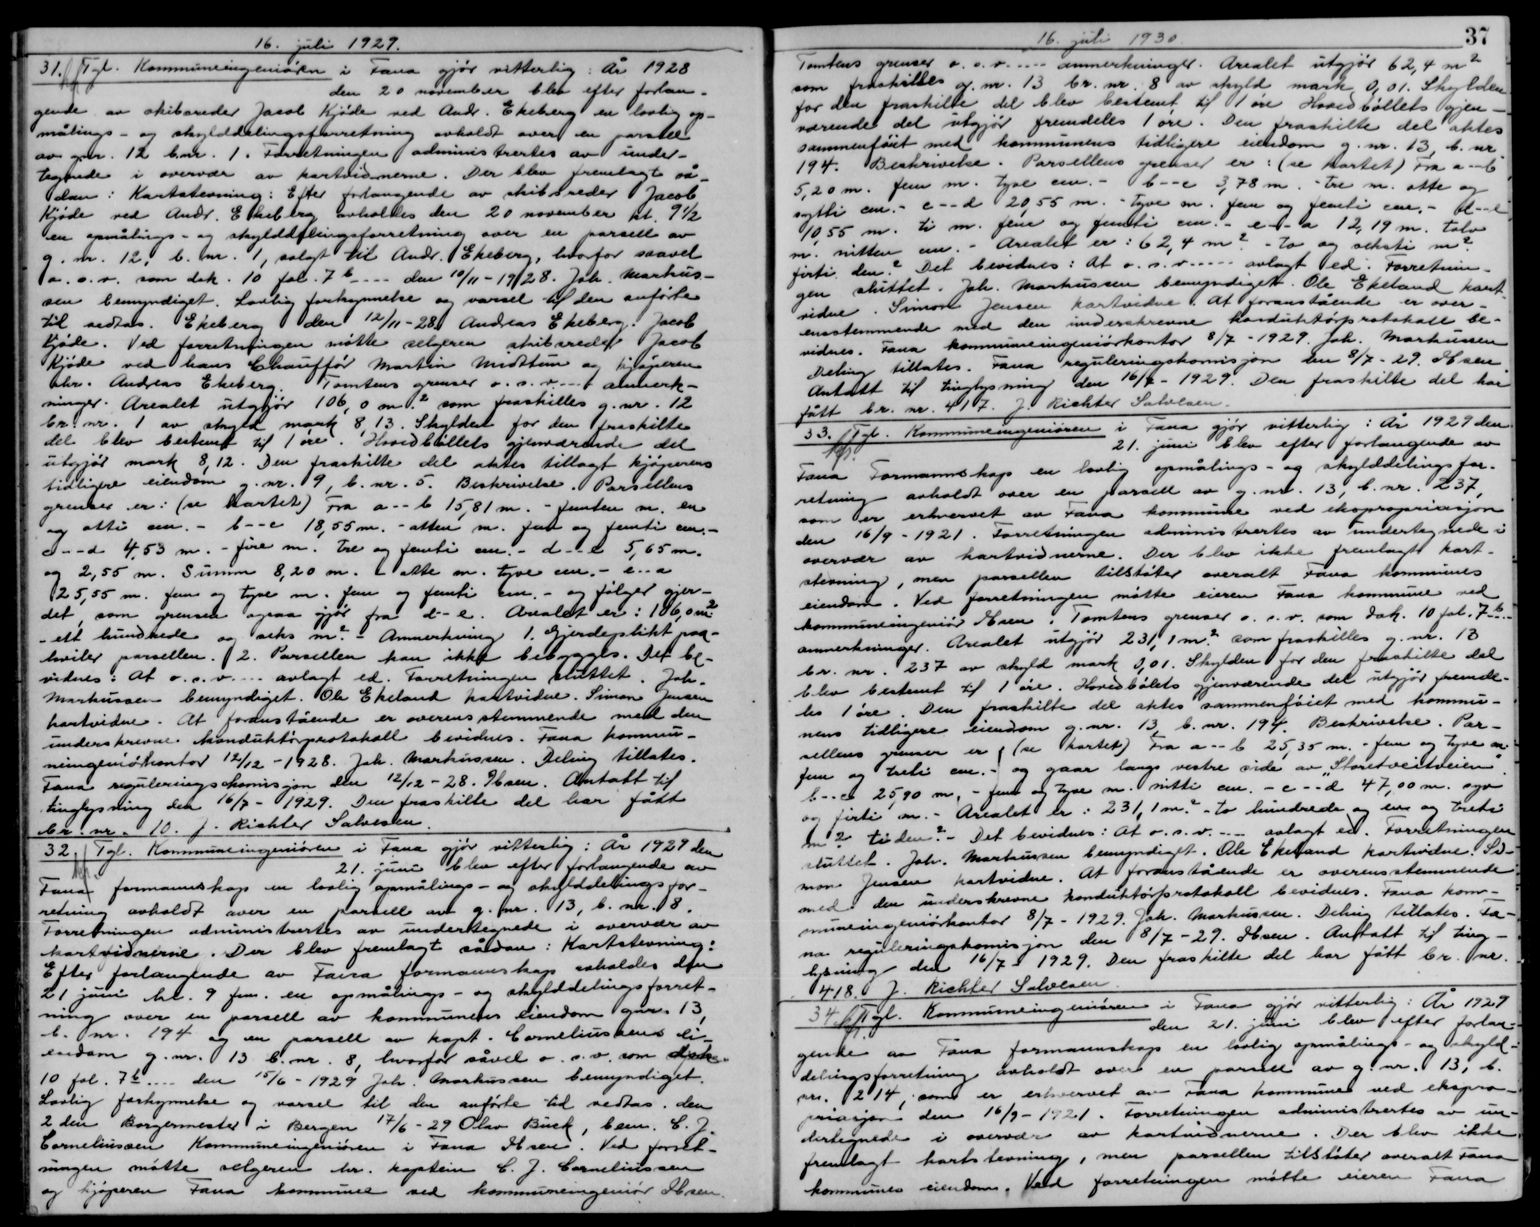 16. juli 1929.
31. Tgl. Kommuneingeniören i Fana gjör vitterlig: År 1928
den 20 november blev efter forlan-
gende av skibsreder Jacob Kjöde ved Andr. Ekeberg en lovlig op-
målings- og skylddelingsforretning avholdt over en parsell
av gnr. 12 b.nr. 1. Forretningen administrertes av under-
tegnede i overvær av kartvidnerne. Der blev fremlagt så-
dan: Kartstevning: Efter forlangende av skibsreder Jacob
Kjöde ved Andr. Ekeberg avholdes den 20 november kl. 9 1/2
en opmålings- og skylddelingsforretning over en parsell av
g. nr. 12. b. nr. 1, solgt til Andr. Ekeberg, hvorfor saavel
o. s. v. som dok. 10 fol. 7 b ---- den 10/11-1928. Joh. Markus-
sen bemyndiget. Lovlig forkynnelse og varsel til den anförte
tid vedtas. Ekeberg den 12/11-28. Andreas Ekeberg. Jacob
Kjöde. Ved forretningen mötte selgeren skibsreder Jacob
Kjöde ved hans Chaufför Martin Midttun og kjöperen
hr. Andreas Ekeberg. Tomtens grenser o. s. v. --- anmerk-
ninger. Arealet utgjör 106,0 m.² som fraskilles g. nr. 12
br. nr. 1 av skyld mark 8,13. Skylden for den fraskilte
del blev bestemt til 1 öre. Hovedböllets gjenværende del
utgjör mark 8,12. Den fraskilte del aktes tillagt kjöperens
tidligere eiendom g. nr. 9, b. nr. 5. Beskrivelse. Parsellens
grenser er: (se kartet) Fra a--b 15,81 m. - femten m. en
og otti cm. - b--c 18,55 m. - atten m. fem og femti cm. -
c---d 4,53 m. - fire m. tre og femti cm. - d--e 5,65 m.
og 2,55 m. Summ 8,20 m. - otte m. tyve cm. - e--a
25,55 m. fem og tyve m. fem og femti cm. - og fölger gjer-
det, som grensen ogsaa gjör fra d--e. Arealet er: 106,0 m²
- ett hundrede og seks m² - Anmerkning 1. Gjerdeplikt paa-
hviler parsellen. 2. Parsellen kan ikke bebygges. Det be-
vidnes: At o. s. v. --- avlagt ed. Forretningen sluttet. Joh.
Markussen bemyndiget. Ole Ekeland kartvidne. Simon Jensen
kartvidne. At foranstående er overensstemmende med den
underskrevne konduktörprotokoll bevidnes. Fana kommu-
neingeniörkontor 12/12-1928. Joh. Markussen. Deling tillates.
Fana reguleringskomisjon den 12/12-28. Hsen. Antatt til
tinglysning den 16/7-1929. Den fraskilte del har fått
br. nr. 10. J. Richter Salvesen.
32. Tgl. Kommuneingeniören i Fana gjör vitterlig: År 1929 den
21. juni blev efter forlangende av
Fana formannskap en lovlig opmålings- og skylddelingsfor-
retning avholdt over en parsell av g. nr. 13, b. nr. 8.
Forretningen administrertes av undertegnede i overvær av
kartvidnerne. Der blev fremlagt sådan: Kartstevning:
Efter forlangende av Fana formannskap avholdes den
21 juni kl. 9 fm. en opmålings- og skylddelingsforret-
ning over en parsell av kommunens eiendom gnr. 13,
b. nr. 194 og en parsell av kapt. Corneliussens ei-
endom g. nr. 13 b. nr. 8, hvorfor såvel o. s. v. som dok.
10 fol. 7 b .... den 15/6-1929 Joh. Markussen bemyndiget.
Lovlig forkynnelse og varsel til den anförte tid vedtas. den
2 den Borgermester i Bergen 17/6-29 Olav Buck, bem. C. J.
Corneliussen Kommuneingeniören i Fana Hsen. Ved forret-
ningen mötte selgeren hr. kaptein C. J. Corneliussen
og kjöperen Fana kommune ved kommuneingeniör Hsen.
16. juli 1930. 37
Tomtens grenser o. s. v. ---- anmerkninger. Arealet utgjör 62,4 m²
som fraskilles g. nr. 13 br. nr. 8 av skyld mark 0,01. Skylden
for den fraskilte del blev bestemt til 1 öre Hovedböllets gjen-
værende del utgjör fremdeles 1 öre. Den fraskilte del aktes
sammenföiet med kommunens tidligere eiendom g. nr. 13, b. nr
194. Beskrivelse. Parsellens grenser er: (se kartet) Fra a--b
5,20 m. fem m. tyve cm. - b--c 3,78 m. - tre m. otte og
sytti cm. - c--d 20,55 m. - tyve m. fem og femti cm. - d--e
10,55 m. ti m. fem og femti cm. - e--a 12,19 m. tolv
m. nitten cm. - Arealet er: 62,4 m² - to og seksti m²
firti dm.² Det bevidnes: At o. s. v. ----- avlagt ed. Forretnin-
gen sluttet. Joh. Markussen bemyndiget. Ole Ekeland kart-
vidne. Simon Jensen kartvidne. At foranstående er over-
ensstemmende med den underskrevne konduktörprotokoll be-
vidnes. Fana kommuneingeniörkontor 8/7-1929. Joh. Markussen
Deling tillates. Fana reguleringskomisjon den 8/7-29. Hsen.
Antatt til tinglysning den 16/7-1929. Den fraskilte del har
fått br. nr. 417. J. Richter Salvesen.
33. Tgl. Kommuneingeniören i Fana gjör vitterlig: År 1929 den
21. juni blev efter forlangende av
Fana Formannskap en lovlig opmålings- og skylddelingsfor-
retning avholdt over en parsell av g. nr. 13, b. nr. 237,
som er erhvervet av Fana kommune ved ekspropriasjon
den 16/9-1921. Forretningen administrertes av undertegnede i
overvær av kartvidnerne. Der blev ikke fremlagt kart-
stevning, men parsellen tilstöter overalt Fana kommunes
eiendom. Ved forretningen mötte eieren Fana kommune ved
kommuneingeniör Hsen. Tomtens grenser o. s. v. som dok. 10 fol. 7 b ---
anmerkninger. Arealet utgjör 231,1 m.² som fraskilles g. nr. 13
br. nr. 237 av skyld mark 0,01. Skylden for den fraskilte del
blev bestemt til 1 öre. Hovedbölets gjenværende del utgjör fremde-
les 1 öre. Den fraskilte del aktes sammenföiet med kommu-
nens tidligere eiendom g. nr. 13, b. nr. 194. Beskrivelse. Par-
sellens grenser er (se kartet) Fra a--b 25,35 m. - fem og tyve m.
fem og treti cm. - og gaar langs vestre side av „Storetveitveien".
b--c 25,90 m. - fem og tyve m. nitti cm. - c--d 47,00 m. syv
og firti m. - Arealet er: 231,1 m.² - to hundrede og en og treti
m² ti dm.² - Det bevidnes: At o. s. v. --- avlagt ed. Forretningen
sluttet. Joh. Markussen bemyndiget. Ole Ekeland kartvidne. Si-
mon Jensen kartvidne. At foranstående er overensstemmende
med den underskrevne konduktörprotokoll bevidnes. Fana kom-
muneingeniörkontor 8/7-1929. Joh. Markussen. Deling tillates. Fa-
na reguleringskomisjon den 8/7-29. Hsen. Antatt til ting-
lysning den 16/7 1929. Den fraskilte del har fått br. nr.
418. J. Richter Salvesen.
34. Tgl. Kommuneingeniören i Fana gjör vitterlig: År 1929
den 21. juni blev efter forlan-
gende av Fana formannskap en lovlig opmålings- og skyld-
delingsforretning avholdt over en parsell av g. nr. 13, b.
nr. 214, som er erhvervet av Fana kommune ved ekspro-
priasjon den 16/9-1921. Forretningen administrertes av un-
dertegnede i overvær av kartvidnerne. Der blev ikke
fremlagt kartstevning, men parsellen tilstöter overalt Fana
kommunes eiendom. Ved forretningen mötte eieren Fana